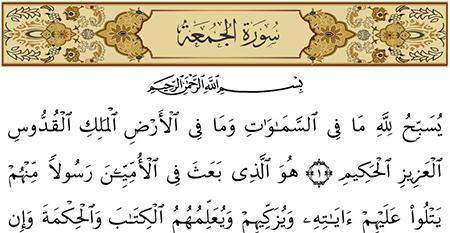 سُورَةُ الجُمُعَةِ
بِسْمِ ٱللَّهِ ٱلرَّحْمَٰنِ ٱلرَّحِيمِ
يُسَبِّحُ لِلَّهِ مَا فِى ٱلسَّمَٰوَٰتِ وَمَا فِى ٱلْأَرْضِ ٱلْمَلِكِ ٱلْقُدُّوسِ
ٱلْعَزِيزِ ٱلْحَكِيمِ ﴿١﴾ هُوَ ٱلَّذِى بَعَثَ فِى ٱلْأُمِّيِّـۧنَ رَسُولًا مِّنْهُمْ
يَتْلُوا۟ عَلَيْهِمْ ءَايَٰتِهِۦ وَيُزَكِّيهِمْ وَيُعَلِّمُهُمُ ٱلْكِتَٰبَ وَٱلْحِكْمَةَ وَإِن